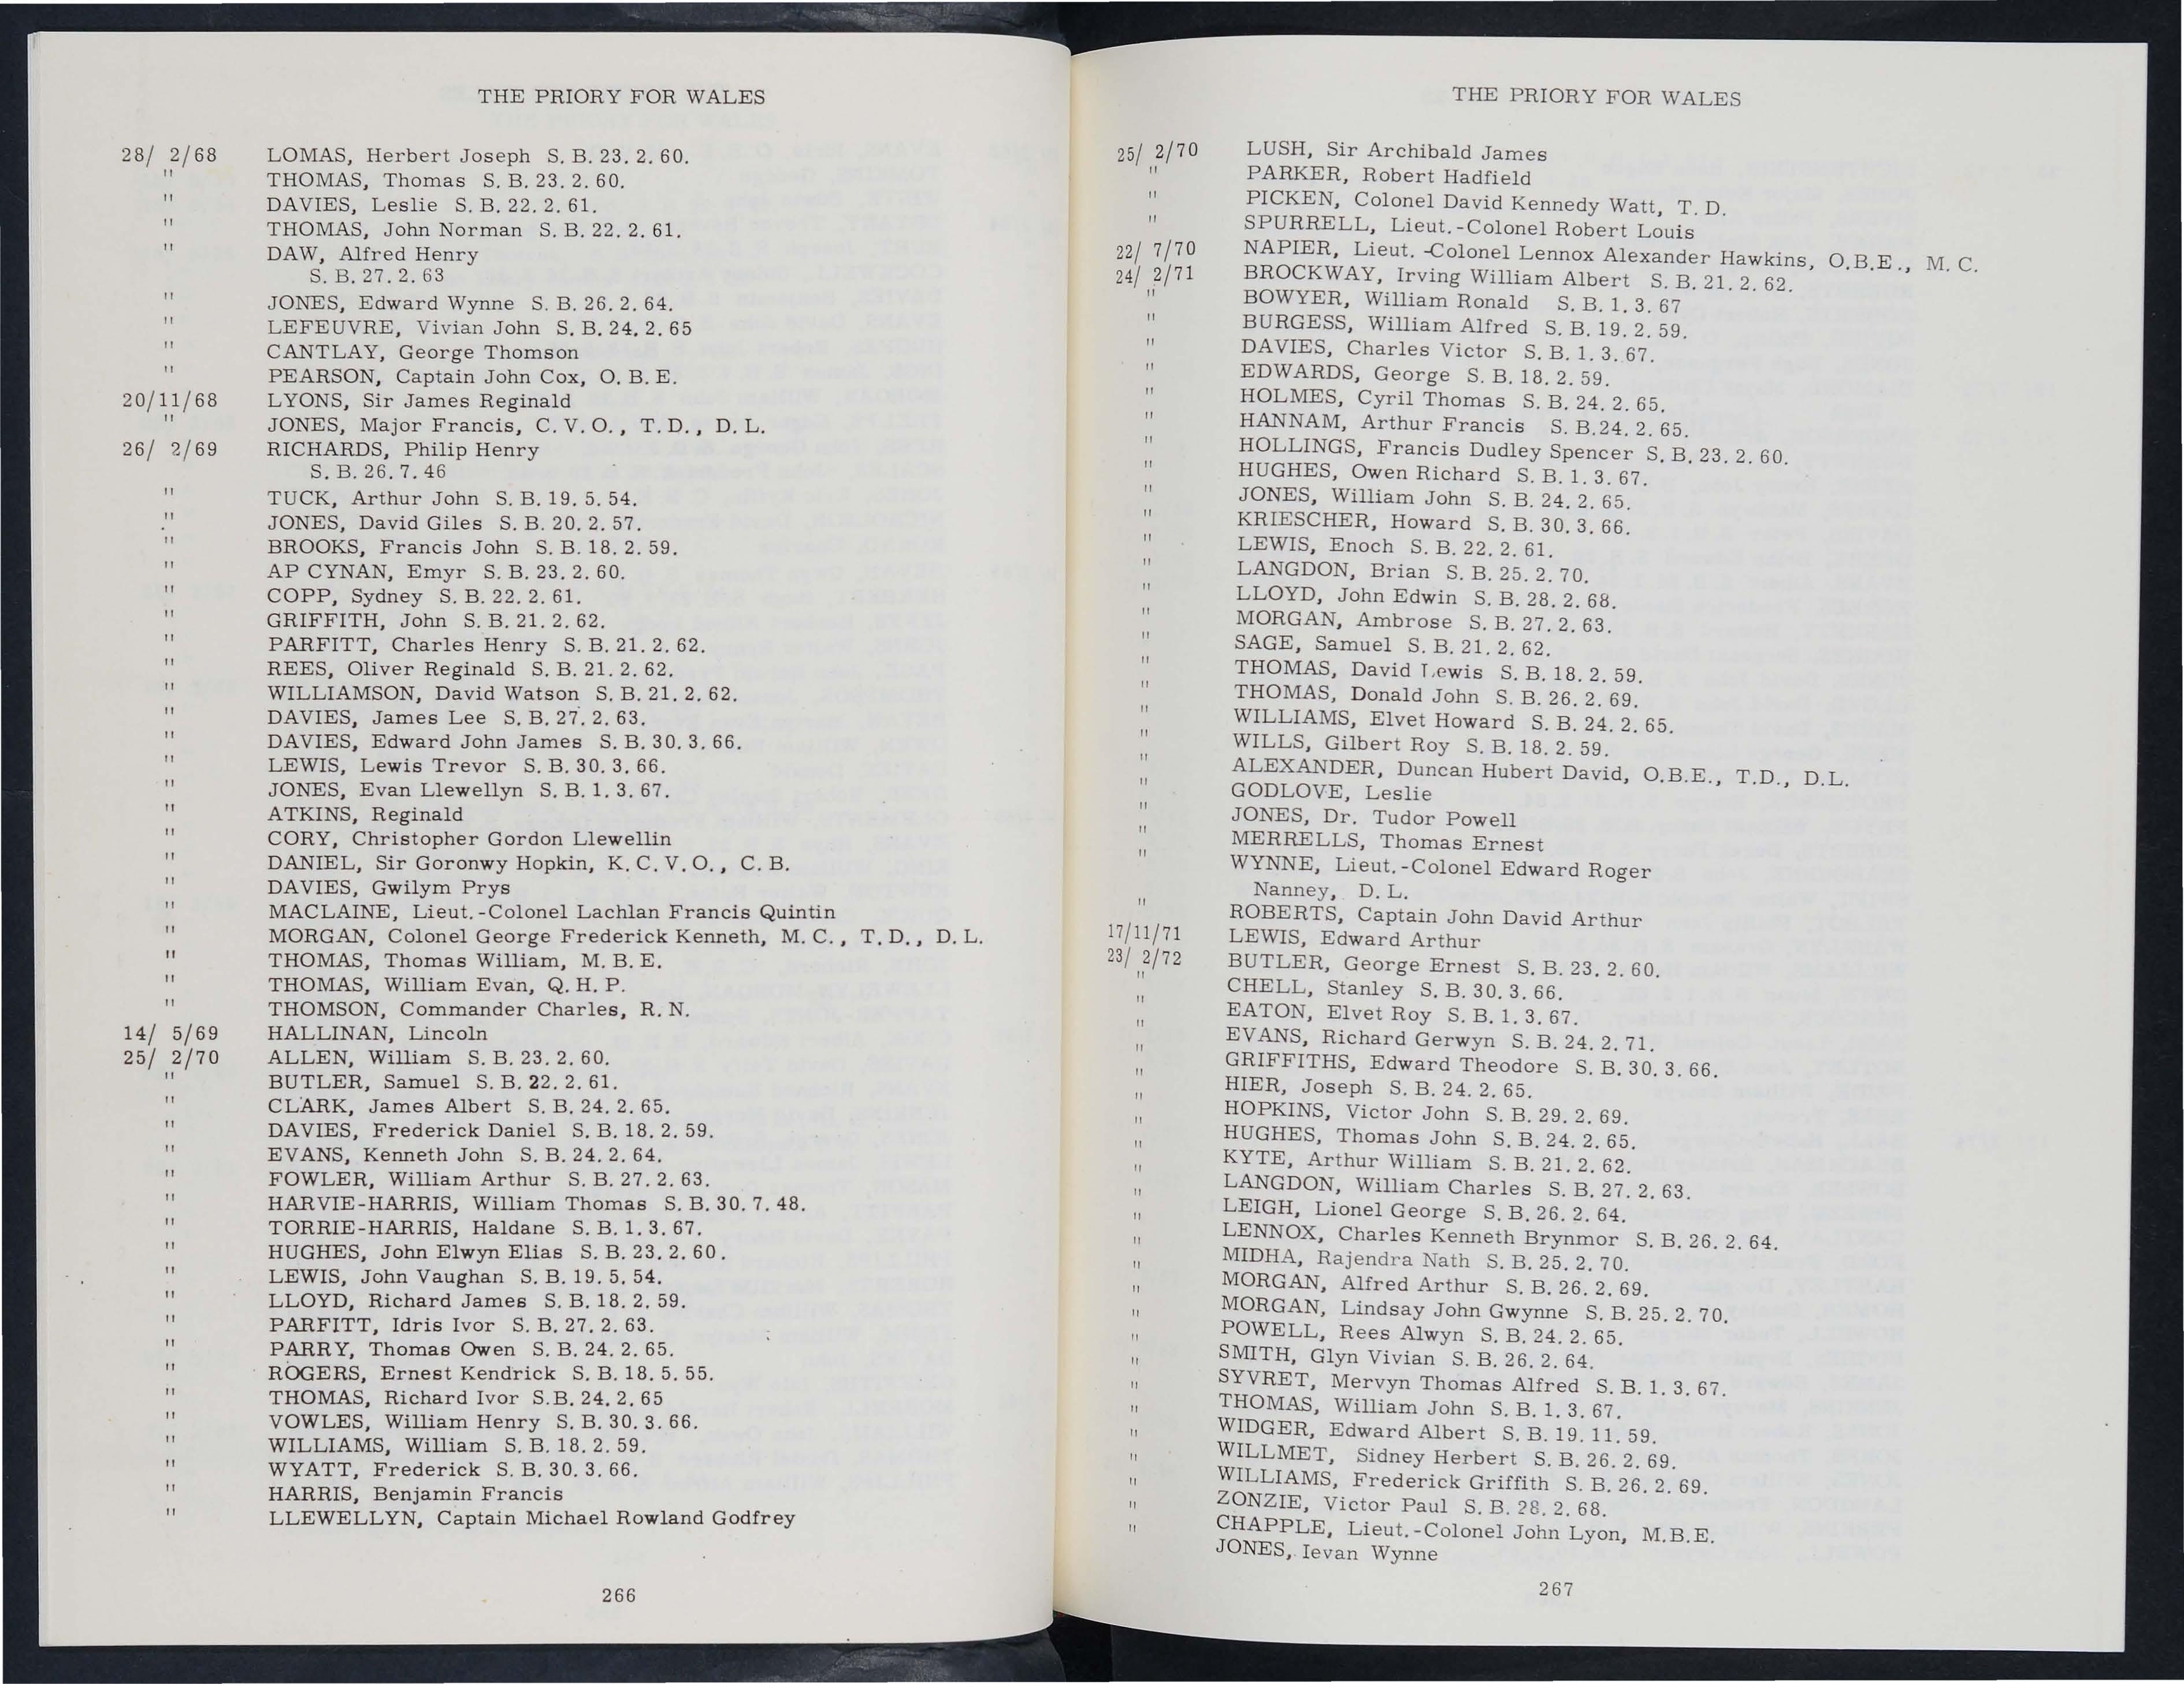 THE PRIORY FOR WALES
28/ 2/68 LOMAS, Herbert Joseph S. B. 23. 2. 60.
" THOMAS, Thomas S. B. 23. 2. 60.
" DAVIES, Leslie S. B. 22. 2. 61.
" THOMAS, John Norman S. B. 22. 2. 61.
" DAW, Alfred Henry
S. B. 27. 2. 63
" JONES, Edward Wynne S. B. 26. 2. 64.
" LEFEUVRE, Vivian John S. B. 24. 2. 65
" CANTLAY, George Thomson
" PEARSON, Captain John Cox, O. B. E.
20/11/68 LYONS, Sir James Reginald
" JONES, Major Francis, C. V. O., T. D., D. L.
26/ 2/69 RICHARDS, Philip Henry
S. B. 26. 7. 46
" TUCK, Arthur John S. B. 19. 5. 54.
" JONES, David Giles S. B. 20. 2. 57.
" BROOKS, Francis John S. B. 18. 2. 59.
" AP CYNAN, Emyr S. B. 23. 2. 60.
" COPP, Sydney S. B. 22. 2. 61.
" GRIFFITH, John S. B. 21. 2. 62.
" PARFITT, Charles Henry S. B. 21. 2. 62.
" REES, Oliver Reginald S. B. 21. 2. 62.
" WILLIAMSON, David Watson S. B. 21. 2. 62.
" DAVIES, James Lee S. B. 27. 2. 63.
" DAVIES, Edward John James S. B. 30. 3. 66.
" LEWIS, Lewis Trevor S. B. 30. 3. 66.
" JONES, Evan Llewellyn S. B. 1. 3. 67.
" ATKINS, Reginald
" CORY, Christopher Gordon Llewellin
" DANIEL, Sir Goronwy Hopkin, K. C. V. O., C. B.
" DAVIES, Gwilym Prys
" MACLAINE, Lieut.-Colonel Lachlan Francis Quintin
" MORGAN, Colonel George Frederick Kenneth, M. C., T. D., D. L.
" THOMAS, Thomas William, M. B. E.
" THOMAS, William Evan, Q. H. P.
" THOMSON, Commander Charles, R. N.
14/ 5/69 HALLINAN, Lincoln
25/ 2/70 ALLEN, William S. B. 23. 2. 60.
" BUTLER, Samuel S. B. 22. 2. 61.
" CLARK, James Albert S. B. 24. 2. 65.
" DAVIES, Frederick Daniel S. B. 18. 2. 59.
" EVANS, Kenneth John S. B. 24. 2. 64.
" FOWLER, William Arthur S. B. 27. 2. 63.
" HARVIE-HARRIS, William Thomas S. B. 30. 7. 48.
" TORRIE-HARRIS, Haldane S. B. 1. 3. 67.
" HUGHES, John Elwyn Elias S. B. 23. 2. 60.
" LEWIS, John Vaughan S. B. 19. 5. 54.
" LLOYD, Richard James S. B. 18. 2. 59.
" PARFITT, Idris Ivor S. B. 27. 2. 63.
" PARRY, Thomas Owen S. B. 24. 2. 65.
" ROGERS, Ernest Kendrick S. B. 18. 5. 55.
" THOMAS, Richard Ivor S.B. 24. 2. 65
" VOWLES, William Henry S. B. 30. 3. 66.
" WILLIAMS, William S. B. 18. 2. 59.
" WYATT, Frederick S. B. 30. 3. 66.
" HARRIS, Benjamin Francis
" LLEWELLYN, Captain Michael Rowland Godfrey
266
THE PRIORY FOR WALES
25/ 2/70 LUSH, Sir Archibald James
" PARKER, Robert Hadfield
" PICKEN, Colonel David Kennedy Watt, T. D.
" SPURRELL, Lieut.-Colonel Robert Louis
22/ 7/70 NAPIER, Lieut.-Colonel Lennox Alexander Hawkins, O.B.E., M. C.
24/ 2/71 BROCKWAY, Irving William Albert S. B. 21. 2. 62.
" BOWYER, William Ronald S. B. 1. 3. 67
" BURGESS, William Alfred S. B. 19. 2. 59.
" DAVIES, Charles Victor S. B. 1. 3. 67.
" EDWARDS, George S. B. 18. 2. 59.
" HOLMES, Cyril Thomas S. B. 24. 2. 65.
" HANNAM, Arthur Francis S. B.24. 2. 65.
" HOLLINGS, Francis Dudley Spencer S. B. 23. 2. 60.
" HUGHES, Owen Richard S. B. 1. 3. 67.
" JONES, William John S. B. 24. 2. 65.
" KRIESCHER, Howard S. B. 30. 3. 66.
" LEWIS, Enoch S. B. 22. 2. 61.
" LANGDON, Brian S. B. 25. 2. 70.
" LLOYD, John Edwin S. B. 28. 2. 68.
" MORGAN, Ambrose S. B. 27. 2. 63.
" SAGE, Samuel S. B. 21. 2. 62.
" THOMAS, David Lewis S. B. 18. 2. 59.
" THOMAS, Donald John S. B. 26. 2. 69.
" WILLIAMS, Elvet Howard S. B. 24. 2. 65.
" WILLS, Gilbert Roy S. B. 18. 2. 59.
" ALEXANDER, Duncan Hubert David, O.B.E., T.D., D.L.
" GODLOVE, Leslie
" JONES, Dr. Tudor Powell
" MERRELLS, Thomas Ernest
" WYNNE, Lieut.-Colonel Edward Roger
Nanney, D. L.
" ROBERTS, Captain John David Arthur
17/11/71 LEWIS, Edward Arthur
23/ 2/72 BUTLER, George Ernest S. B. 23. 2. 60.
" CHELL, Stanley S. B. 30. 3. 66.
" EATON, Elvet Roy S. B. 1. 3. 67.
" EVANS, Richard Gerwyn S. B. 24. 2. 71.
" GRIFFITHS, Edward Theodore S. B. 30. 3. 66.
" HIER, Joseph S. B. 24. 2. 65.
" HOPKINS, Victor John S. B. 29. 2. 69.
" HUGHES, Thomas John S. B. 24. 2. 65.
" KYTE, Arthur William S. B. 21. 2. 62.
" LANGDON, William Charles S. B. 27. 2. 63.
" LEIGH, Lionel George S. B. 26. 2. 64.
" LENNOX, Charles Kenneth Brynmor S. B. 26. 2. 64.
" MIDHA, Rajendra Nath S. B. 25. 2. 70.
" MORGAN, Alfred Arthur S. B. 26. 2. 69.
" MORGAN, Lindsay John Gwynne S. B. 25. 2. 70.
" POWELL, Rees Alwyn S. B. 24. 2. 65.
" SMITH, Glyn Vivian S. B. 26. 2. 64.
" SYVRET, Mervyn Thomas Alfred S. B. 1. 3. 67.
" THOMAS, William John S. B. 1. 3. 67.
" WIDGER, Edward Albert S. B. 19. 11. 59.
" WILLMET, Sidney Herbert S. B. 26. 2. 69.
" WILLIAMS, Frederick Griffith S. B. 26. 2. 69.
" ZONZIE, Victor Paul S. B. 28. 2. 68.
" CHAPPLE, Lieut.-Colonel John Lyon, M.B.E.
JONES, Ievan Wynne
267